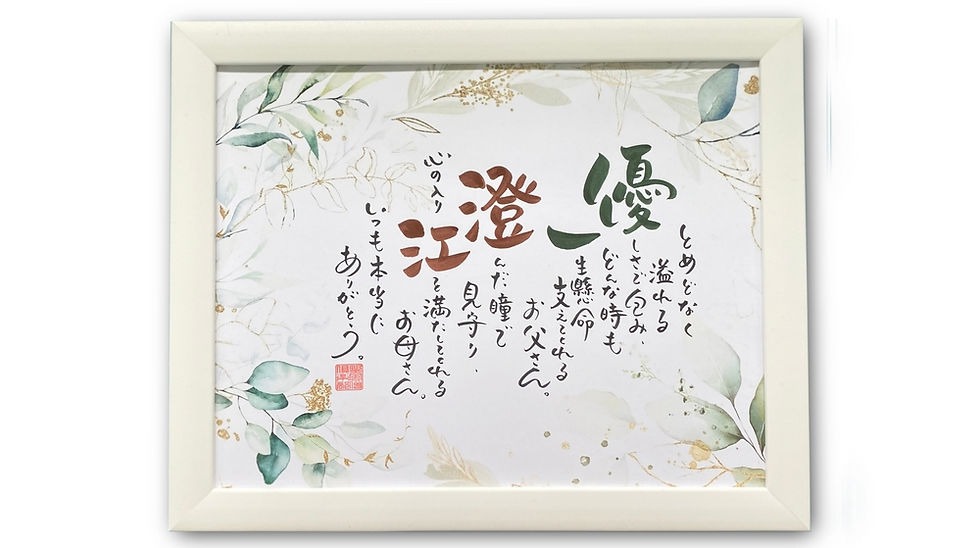 とめどなく
溢れる
優しさで包み、
どんな時も
一生懸命
支えてくれる
お父さん。
澄んだ瞳で
見守り、
心の入り江を満たしてくれる
お母さん。
いつも本当に
ありがとう。